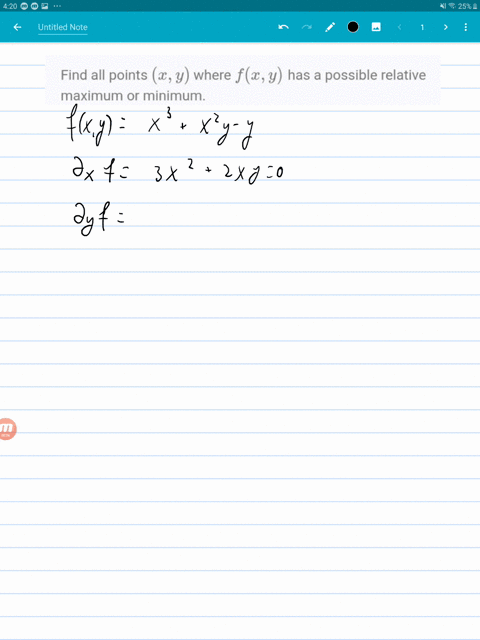 4:20
25%
Untitled Note
1
Find all points (x, y) where f(x, y) has a possible relative
maximum or minimum.
f(x,y) = x³ + x²y - y
∂x f = 3x² + 2xy = 0
∂y f =